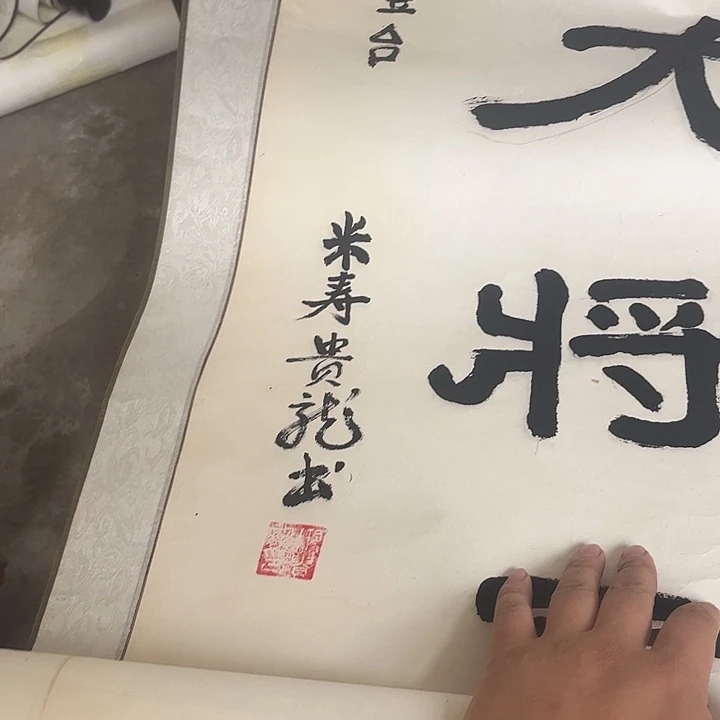 大將
台
米寿贵龍书